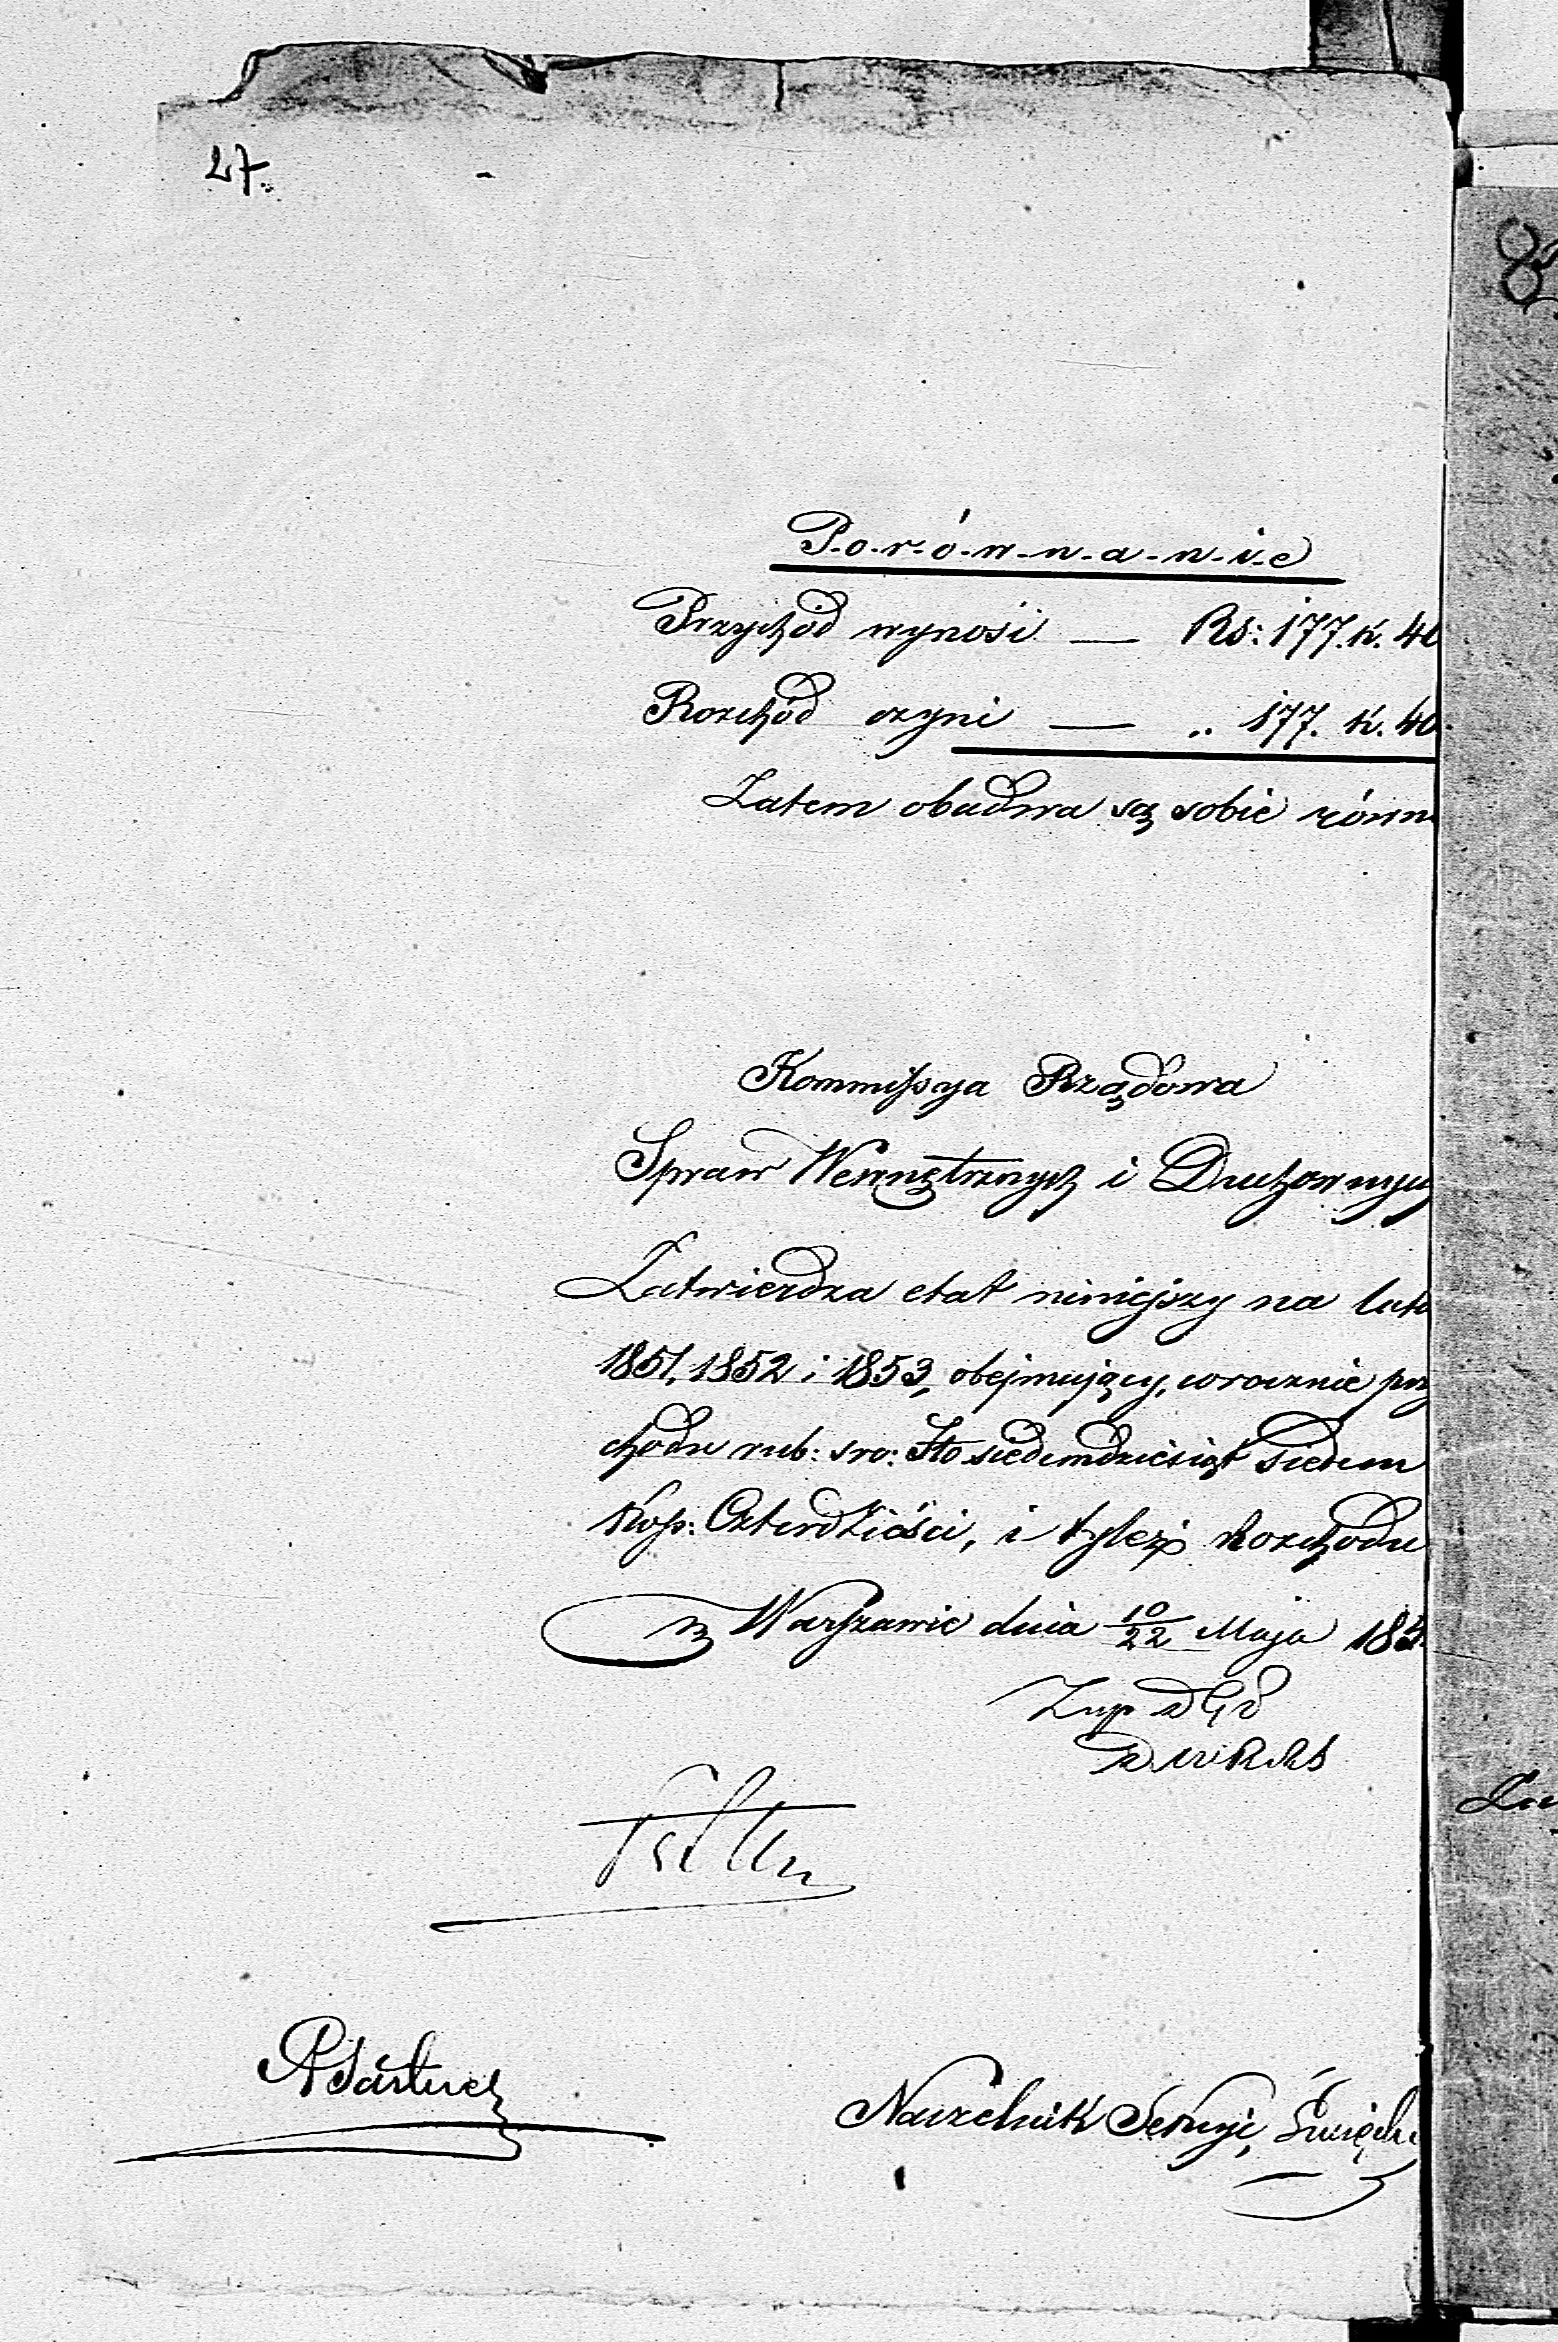 27.
P-o-r-ó-w-n-a-n-i-e
Przychód wynosi — Rs: 177. k. 40
Rozchód czyni — „ 177. k. 40.
Zatem obadwa są sobie równ
Kommissya Rządowa
Spraw Wewnętrznych i Duchownych
Zatwierdza etat niniejszy na lata
1851, 1852 i 1853, obejmujący, wrocznie przy
chodu rub: sro: Sto siedemdziesiąt siedem
Kop: Czterdzieści, i tyleż Rozchodu
w Warszawie dnia 10/22 Maja 185
Naczelnik Sekcyi,